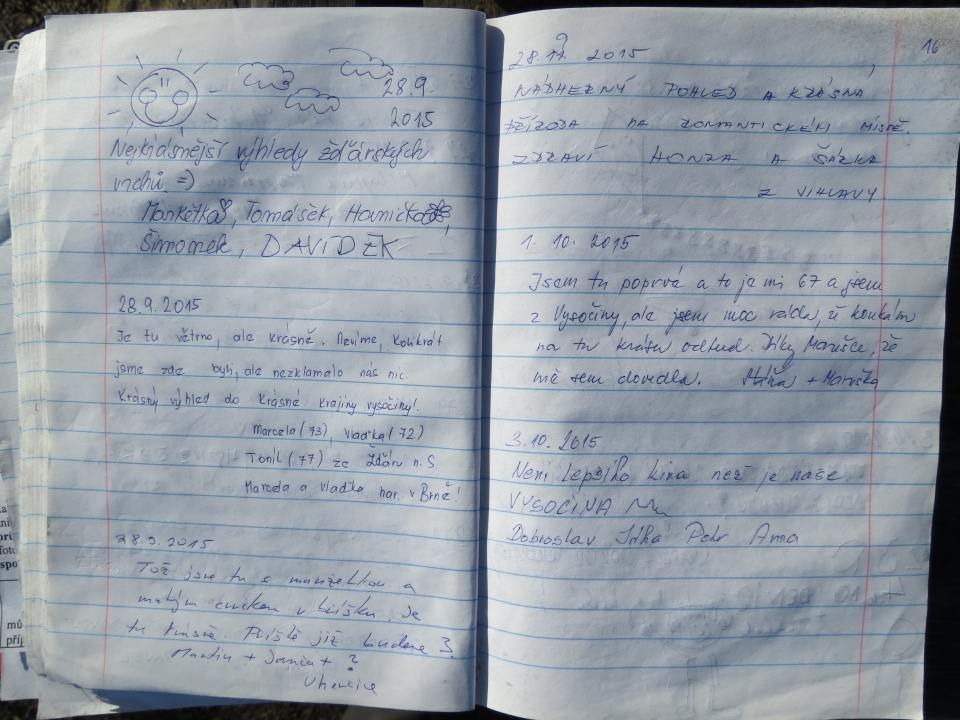 28.9.
2015
Nejkrásnější výhledy žďárských
vrchů =)
Markétka, Tomášek, Hanička,
Šimonek, DAVÍDEK
28.9.2015
Je tu větrno, ale krásně. Nevíme, kolikrát
jsme zde byli, ale nezklamalo nás nic.
Krásný výhled do krásné krajiny vysočiny!
Marcela (73), Vlaďka (72)
Toník (77) ze Žďáru n. S.
Marcela a Vlaďka nar. v Brně!
28.9.2015
Tož jsme tu s manželkou a
malým cvrčkem v bříšku. Je
tu krásně. Příště již budeme 3.
Martin + Jana + ?
16
28.9. 2015
NÁDHERNÝ POHLED A KRÁSNÁ
PŘÍRODA NA ROMANTICKÉM MÍSTĚ.
ZDRAVÍ HONZA A ŠÁRKA
Z JIHLAVY
1. 10. 2015
Jsem tu poprvé a to je mi 67 a jsem
z Vysočiny, ale jsem moc ráda, že koukám
na tu krásu odtud. Díky Marušce, že
mě sem dovedla. + Maruška
3.10.2015
Není lepšího kina než je naše
VYSOČINA
Dobroslav Jitka Petr Anna